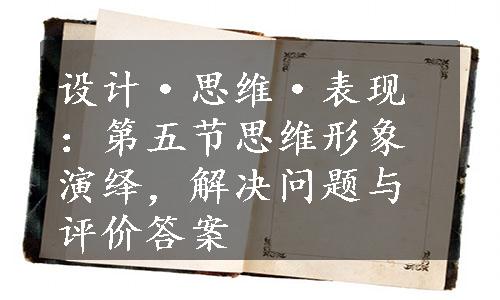 设计·思维·表现
：第五节思维形象
演绎，解决问题与
评价答案